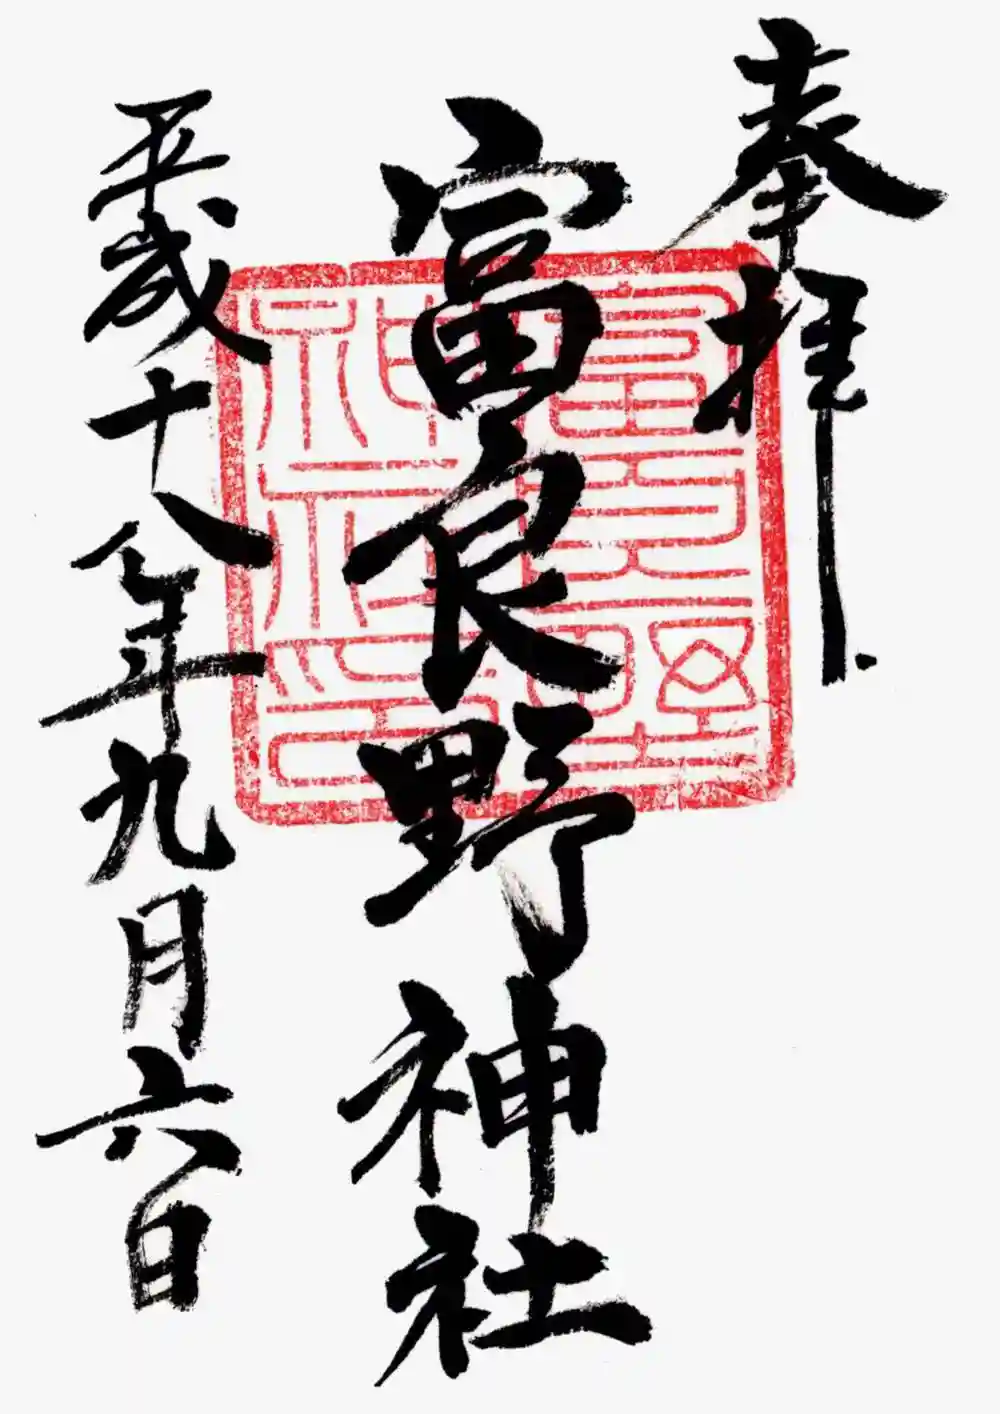 奉拝
富良野神社
富良野
神社印
平成十八年九月六日